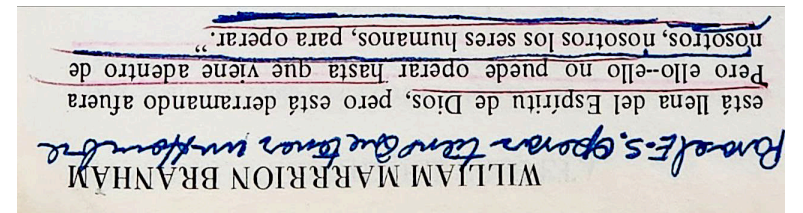 WILLIAM MARRION BRANHAM
Para el E.S. operar tiene que tomar un Hombre
está llena del Espíritu de Dios, pero está derramando afuera
Pero ello--ello no puede operar hasta que viene adentro de
nosotros, nosotros los seres humanos, para operar.”